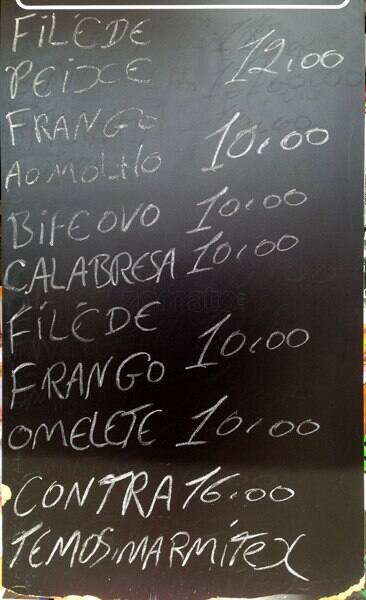 FILÉ DE
PEIXE 12,00
FRANGO
AO MOLHO 10,00
BIFE OVO 10,00
CALABRESA 10,00
FILÉ DE
FRANGO 10,00
OMELETE 10,00
CONTRA 16,00
TEMOS MARMITEX